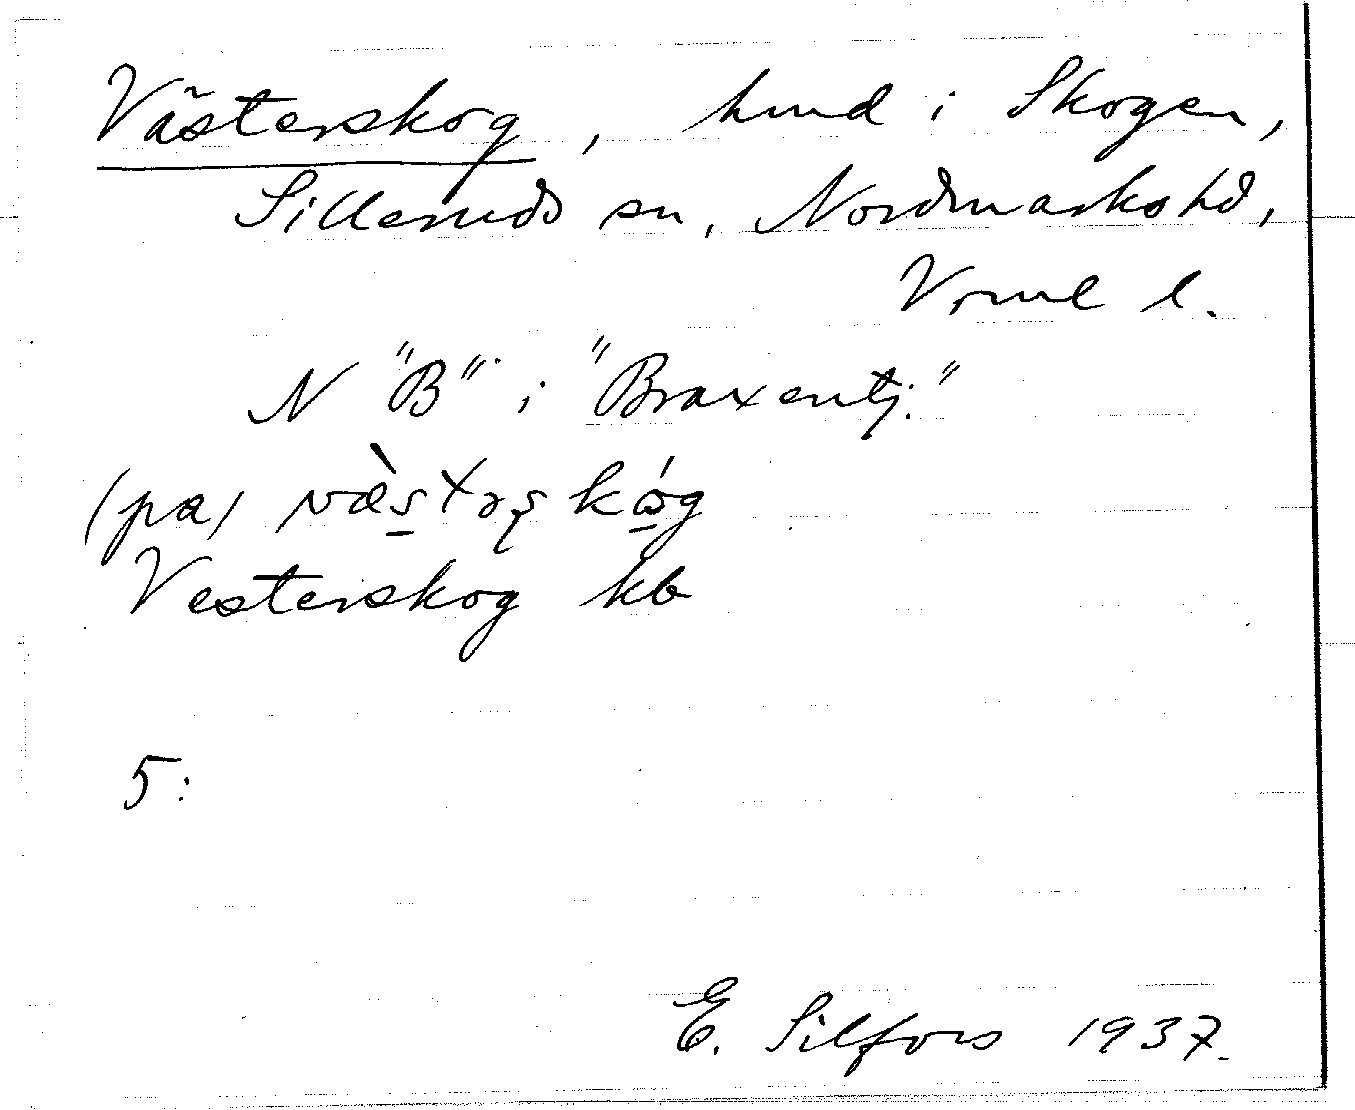 Västerskog, hmd i Skogen,
Silleruds sn, Nordmarks hd,
Vrml l.
N "B" i "Braxentj."
(pa) væ̀stərskóg
Vesterskog kb
5:
E. Silfors 1937.